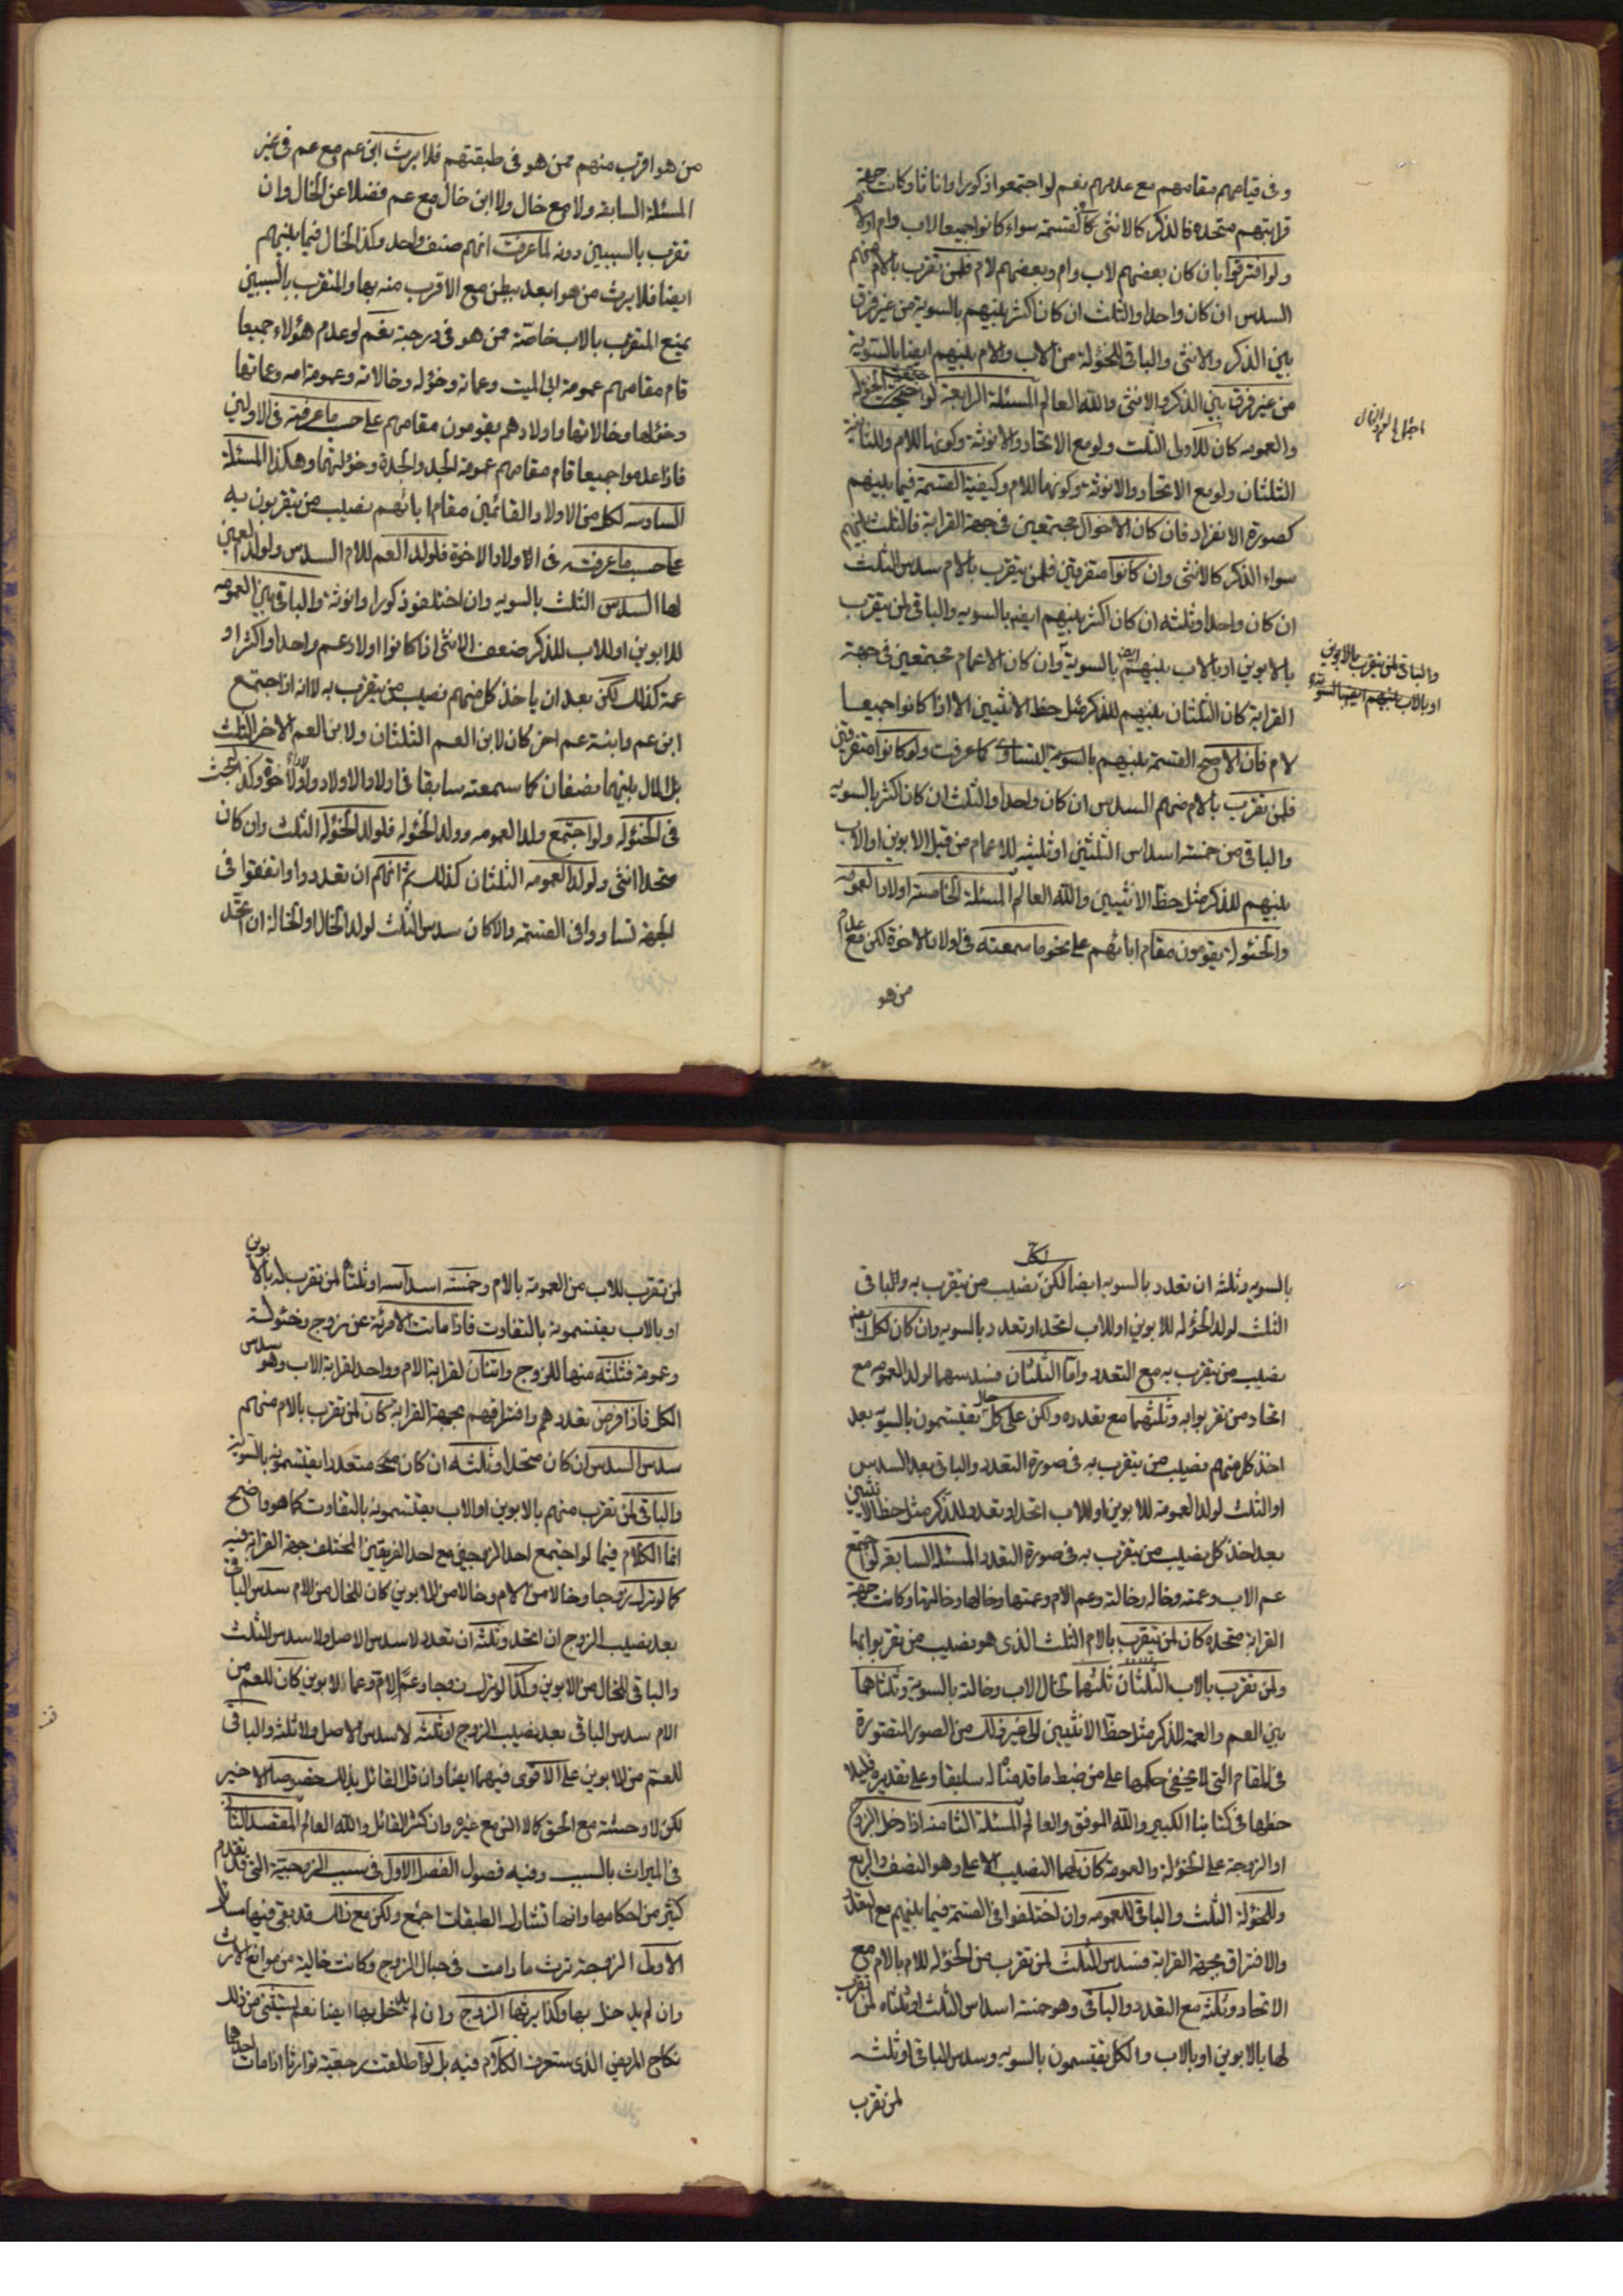 وفى قيامهم مقامهم مع عدمهم نعم لو اجتمعوا ذكورا واناثا وكانت جهة
قرابتهم متحده فالذكر كالانثى فى القسمته سواء كانوا جميعا لاب وام او لام
ولو افترقوا بان كان بعضهم لاب وام وبعضهم لام فلمن تقرب بالام منهم
السدس ان كان واحدا والثلث ان كان اكثر بينهم بالسوية من غير فرق
بين الذكر والانثى والباقى للخؤلة من الاب والام بينهم ايضا بالسوية
من غير فرق بين الذكر والانثى والله العالم المسئلة الرابعة لو اجتمعت الخؤله
والعمومه كان للاولى الثلث ولو مع الاتحاد والانوثة وكونها للام وللثانية
الثلثان ولو مع الاتحاد والانوثة وكونها للام وكيفية القسمة فيما بينهم
كصورة الانفراد فان كان الاخوال مجتمعين فى جهة القرابة فالثلث بينهم
سواء الذكر كالانثى وان كانوا متفرقين فلمن يتقرب بالام سدس الثلث
ان كان واحدا وثلثه ان كان اكثر بينهم ايضا بالسويه والباقى لمن يتقرب
بالابوين او بالاب بينهم ايضا بالسوية وان كان الاعمام مجتمعين فى جهة
والباقى لمن يتقرب بالابوين
او بالاب بينهم ايضا بالسوية
القرابة كان الثلثان بينهم للذكر مثل حظ الانثيين الا اذا كانوا جميعا
لام فان الاصح القسمة بينهم بالسوية التساوى كما عرفت ولو كانوا متفرقين
فلمن تقرب بالام منهم السدس ان كان واحدا والثلث ان كان اكثر بالسويه
والباقى من خمسة اسداس الثلثين او ثلثيه للاعمام من قبل الابوين او الاب
بينهم للذكر مثل حظ الانثيين والله العالم المسئلة الخامسة اولاد العمومه
والخئولة يقومون مقام ابائهم على نحو ما سمعته فى اولاد الاخوة لكن مع عدم
من هو
من هو اقرب منهم ممن هو فى طبقتهم فلا يرث ابن عم مع عم فى غير
المسئلة السابقه ولا مع خال ولا ابن خال مع عم فضلا عن الخال وان
تقرب بالسببين دونه لما عرفت انهم صنف واحد وكذا الخال فيما بينهم
ايضا فلا يرث من هو ابعد ببطن مع الاقرب منه بها والمتقرب بالسببين
يمنع المتقرب بالاب خاصة ممن هو فى درجته نعم لو عدم هؤلاء جميعا
قام مقامهم عمومة ابى الميت وعماته وخؤله وخالاته وعمومة امه وعماتها
وخئولها وخالاتها واولادهم يقومون مقامهم على حسب ما عرفته فى الاولين
فاذا عدموا جميعا قام مقامهم عمومة الجد والجدة وخؤلتهما وهكذا المسئلة
السادسه لكل من الاولاد القائمين مقام ابائهم نصيب من يتقربون به
على حسب ما عرفت فى الاولاد الاخوة فلولد العم للام السدس ولولد العمين
لها السدس الثلث بالسويه وان اختلفوا ذكورا وانوثة والباقى بين العمومه
للابوين او للاب للذكر ضعف الانثى اذا كانوا اولاد عم واحد او اكثر او
عمة كذلك لكن بعد ان ياخذ كل منهم نصيب من يتقرب به لا انه اذا اجتمع
ابن عم وابنة عم اخر كان لابن العم الثلثان ولابن العم الاخر الثلث
بل المال بينهما نصفان كما سمعته سابقا فى اولاد الاولاد واولاد الاخوة وكذا البحث
فى الخئولة ولو اجتمع ولد العمومه وولد الخئوله فلولد الخئولة الثلث وان كان
متحدا انثى ولولد العمومه الثلثان كذلك ثم انهم ان تعددوا واتفقوا فى
الجهة تساووا فى القسمة والا كان سدس الثلث لولد الخال او الخالة ان اتحد
بالسويه وثلثه ان تعدد بالسويه ايضا لكن لكل نصيب من يتقرب به والباقى
الثلث لولد الخؤله للابوين او للاب اتحد او تعدد بالسويه وان كان لكل منهم
نصيب من يتقرب به مع التعدد واما الثلثان فسدسهما لولد العمومه مع
اتحاد من تقربوا به وثلثهما مع تعدده ولكن على كل حال يقتسمون بالسويه بعد
اخذ كل منهم نصيب من يتقرب به فى صورة التعدد والباقى بعد السدس
او الثلث لولد العمومة للابوين او للاب اتحد او تعدد للذكر مثل حظ الانثيين
بعد اخذ كل نصيب من يتقرب به فى صورة التعدد المسئلة السابعه لو اجتمع
عم الاب وعمته وخاله وخالته وعم الام وعمتها وخالها وخالتها وكانت جهة
القرابة متحده كان لمن يتقرب بالام الثلث الذى هو نصيب من تقربوا بها
ولمن تقرب بالاب الثلثان ثلثهما لخال الاب وخالته بالسوية وثلثاهما
بين العم والعمة للذكر مثل حظ الانثيين الى غير ذلك من الصور المتصورة
فى المقام التى لا يخفى حكمها على من ضبط ما قدمناه له سابقا وعلى تقديره فليلا
حظها فى كتابنا الكبير والله الموفق والعالم المسئلة الثامنه اذا دخل الزوج
او الزوجة على الخئولة والعمومة كان لهما النصيب الاعلى وهو النصف والربع
وللخؤلة الثلث والباقى للعمومه وان اختلفوا فى القسمة فيما بينهم مع التعدد
والافتراق بجهة القرابة فسدس الثلث لمن تقرب من الخؤله للام بالام مع
الاتحاد وثلثه مع التعدد والباقى وهو خمسة اسداس الثلث او ثلثاه لمن تقرب
لها بالابوين او بالاب والكل يقتسمون بالسويه وسدس الباقى او ثلثه
لمن تقرب
لمن تقرب للاب من العمومة بالام وخمسة اسداسه او ثلثاه لمن تقرب له بالابوين
او بالاب يقتسمونه بالتفاوت فاذا ماتت الامرئة عن زوج وخئولة
وعمومة فثلثه منها للزوج واثنان لقرابة الام وواحد لقرابة الاب وهو سدس
الكل فاذا فرض تعددهم وافتراقهم بجهة القرابة كان لمن تقرب بالام منهم
سدس السدس ان كان متحدا وثلثه ان كان متعددا يقتسمونه بالسوية
والباقى لمن تقرب منهم بالابوين او الاب يقتسمونه بالتفاوت كما هو واضح
انما الكلام فيما لو اجتمع احد الزوجين مع احد الفريقين المختلف جهة القرابة فيه
كما لو ترك زوجا وخالا من الام وخالا من الابوين كان للخال من الام سدس الباقى
بعد نصيب الزوج ان اتحد وثلثه ان تعدد لا سدس الاصل ولا سدس الثلث
والباقى للخال من الابوين وكذا لو ترك زوجا وعما لام وعما لابوين كان للعم من
الام سدس الباقى بعد نصيب الزوج او ثلثه لا سدس الاصل ولا ثلثه والباقى
للعم من الابوين على الاقوى فيهما ايضا وان قل القائل بذلك خصوصا الاخير
لكن لا وحشة مع الحق كالانس مع غيره وان كثر القائل والله العالم المقصد الثانى
فى الميراث بالسبب وفيه فصول الفصل الاول فى سبب الزوجية التى قد تقدم
كثير من احكامها وانها تشارك الطبقات اجمع ولكن مع ذلك قد بقى فيها مسائل
الاولى الزوجة ترث ما دامت فى حبال الزوج وكانت خالية من موانع الارث
وان لم يدخل بها وكذا يرثها الزوج وان لم يدخل بها ايضا نعم يستثنى من ذلك
نكاح المريض الذى ستعرف الكلام فيه بل لو اطلقت رجعية توارثا اذا مات احدهما